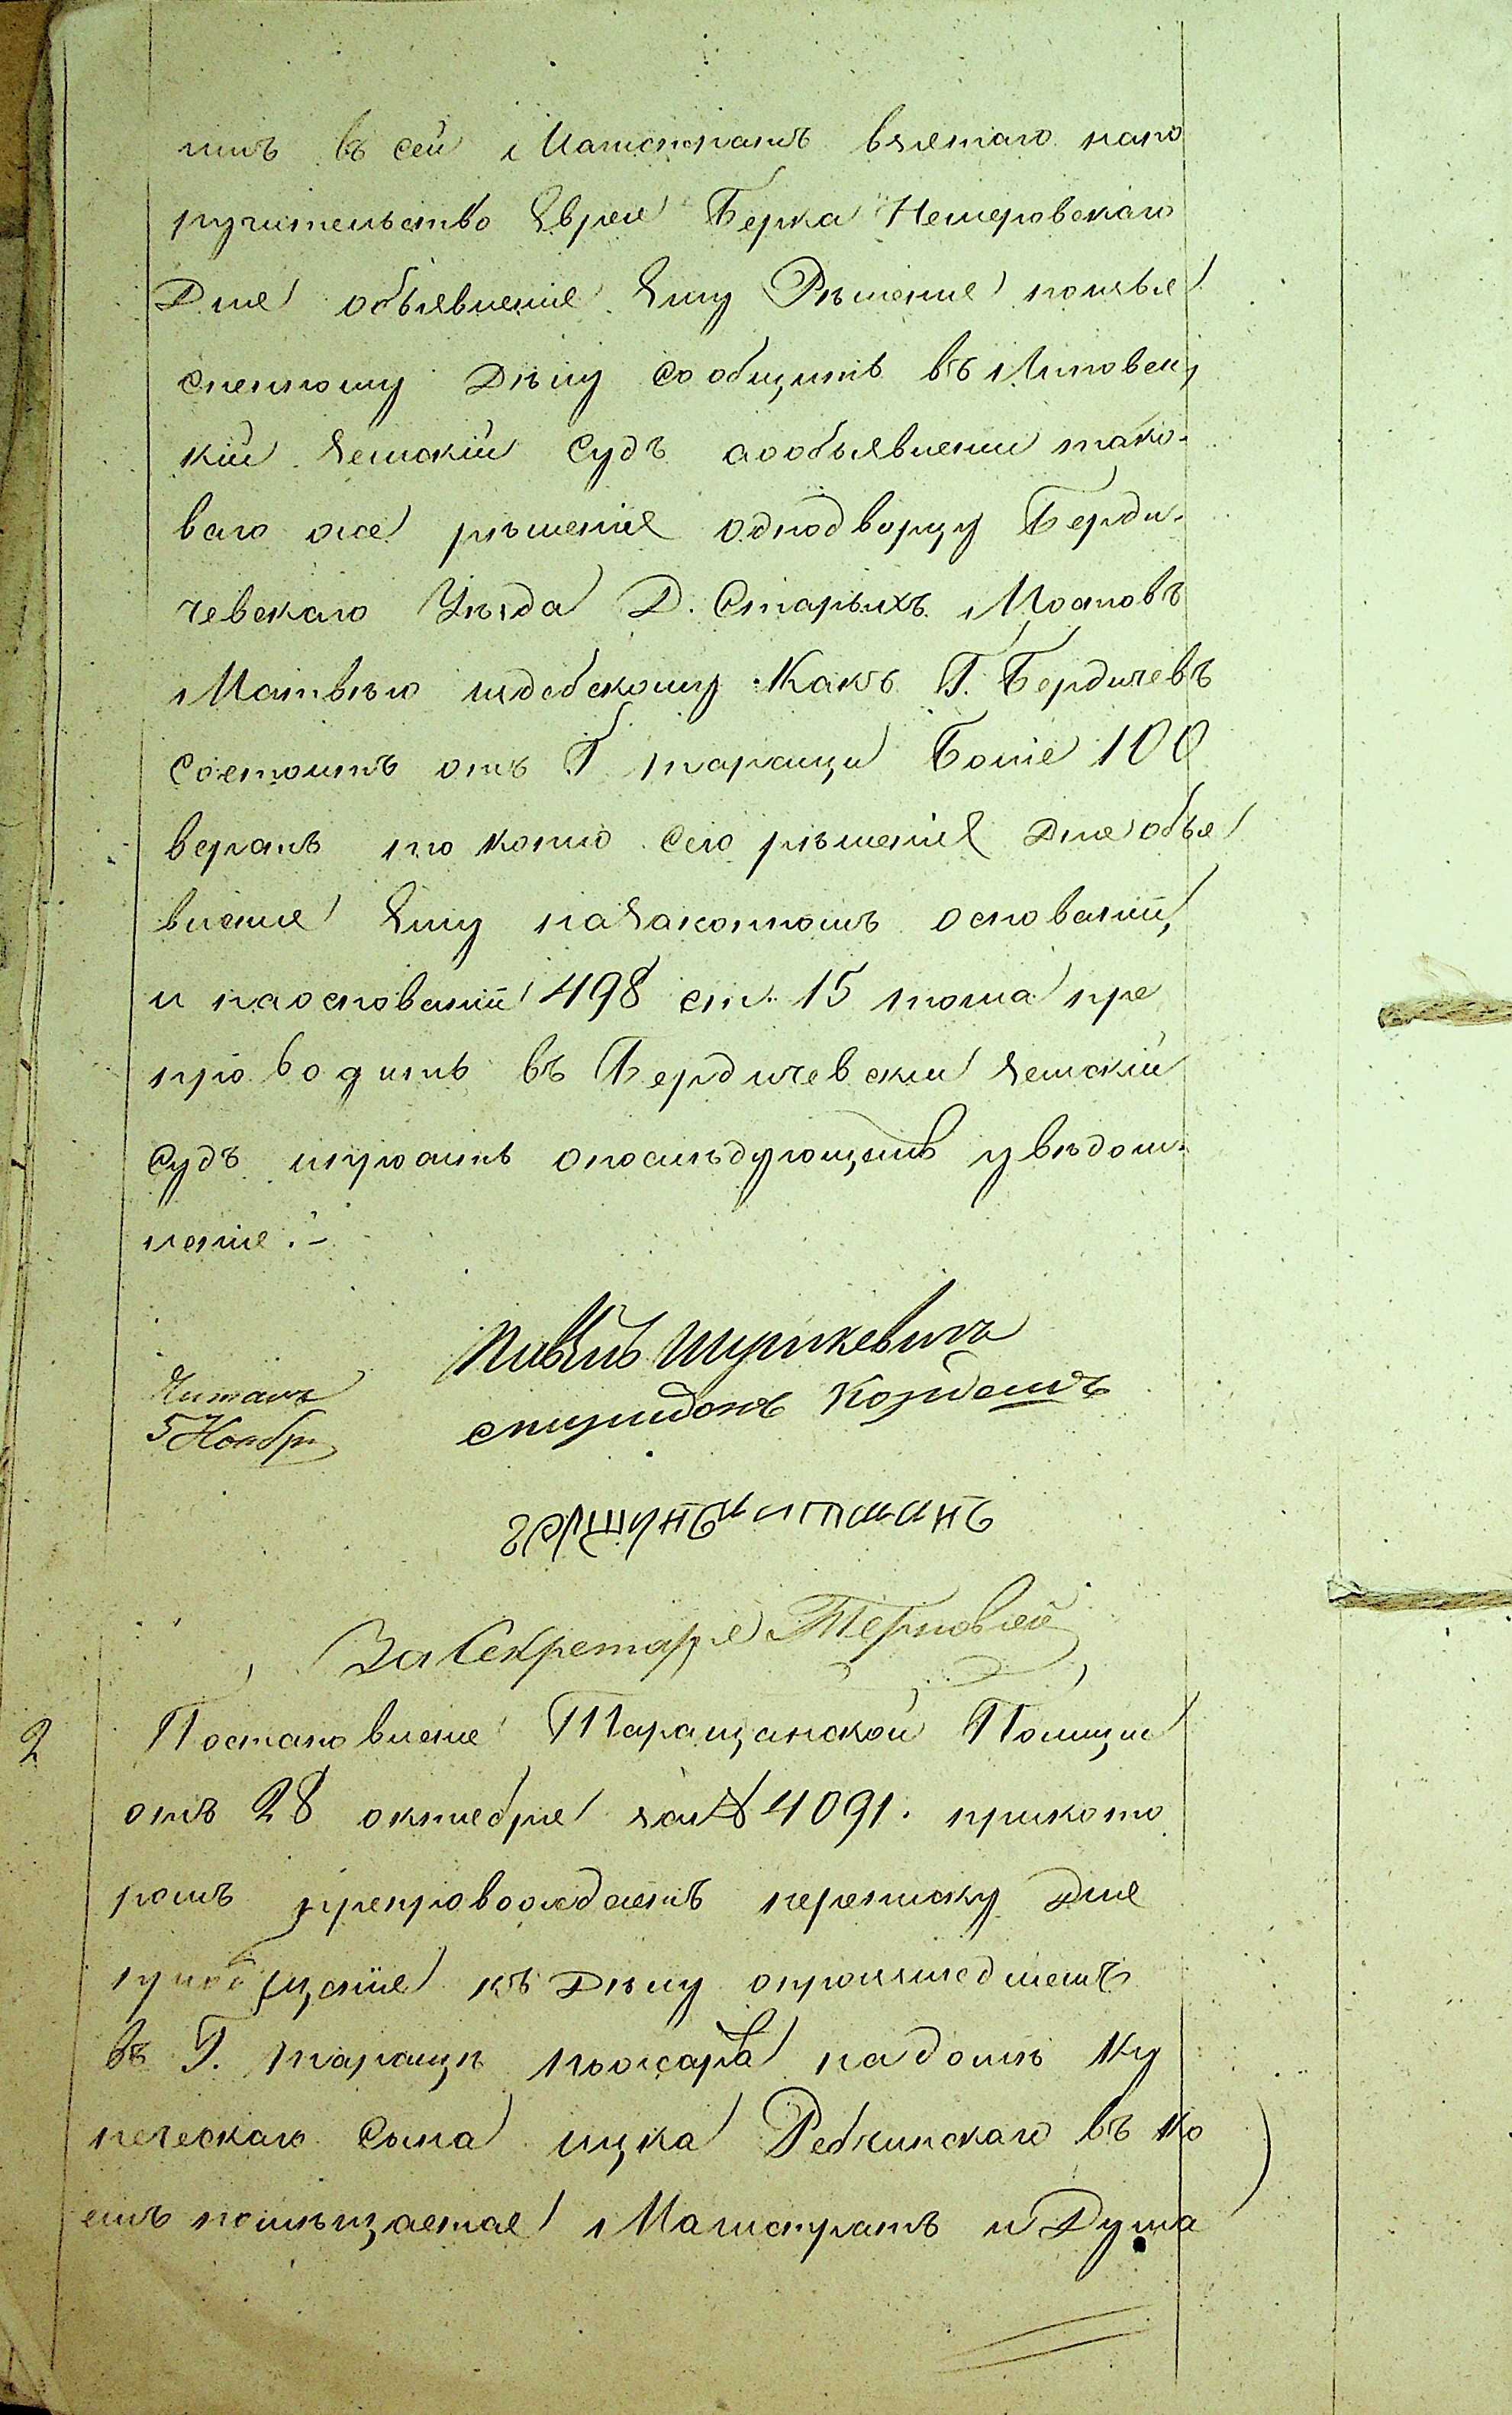 питъ въ сей Магистратъ взятаго напо
ручительство Еврея Берка Немеровскаго
Для объявленія Ему Рѣшенія поизъя
сненному Дѣлу сообщить въ Липовец,
кій Земскій Судъ аообъявленіи тако-
ваго же рѣшенія однодворцу Берди-
чевскаго Уѣзда Д. Старыхъ Мостовъ
Матвѣю Какъ Г. Бердичевъ
состоитъ отъ Г Таращи Боліе 100
верстъ то копію сего рѣшенія Для объя
вленія Ему назаконномъ основаніи,
и наоснованіи 498 ст. 15 тома пре
проводить въ Бердичевскій Земскій
Судъ ипросить опослѣдующемъ увѣдом-
леніе.-
Шулькевичъ
Читалъ
Спиридонъ
5 Ноябр
За Секретаря Терновой
2 Постановленіе Таращанской Полиціи
отъ 28 октября за № 4091. прикото
ромъ препровождаетъ переписку для
пріобщенія къ Дѣлу опроизшедшемъ
въ Г. Таращѣ пожара надомъ Ку
печескаго Сына ицка въ ко
емъ помѣщается Магистратъ и Дума